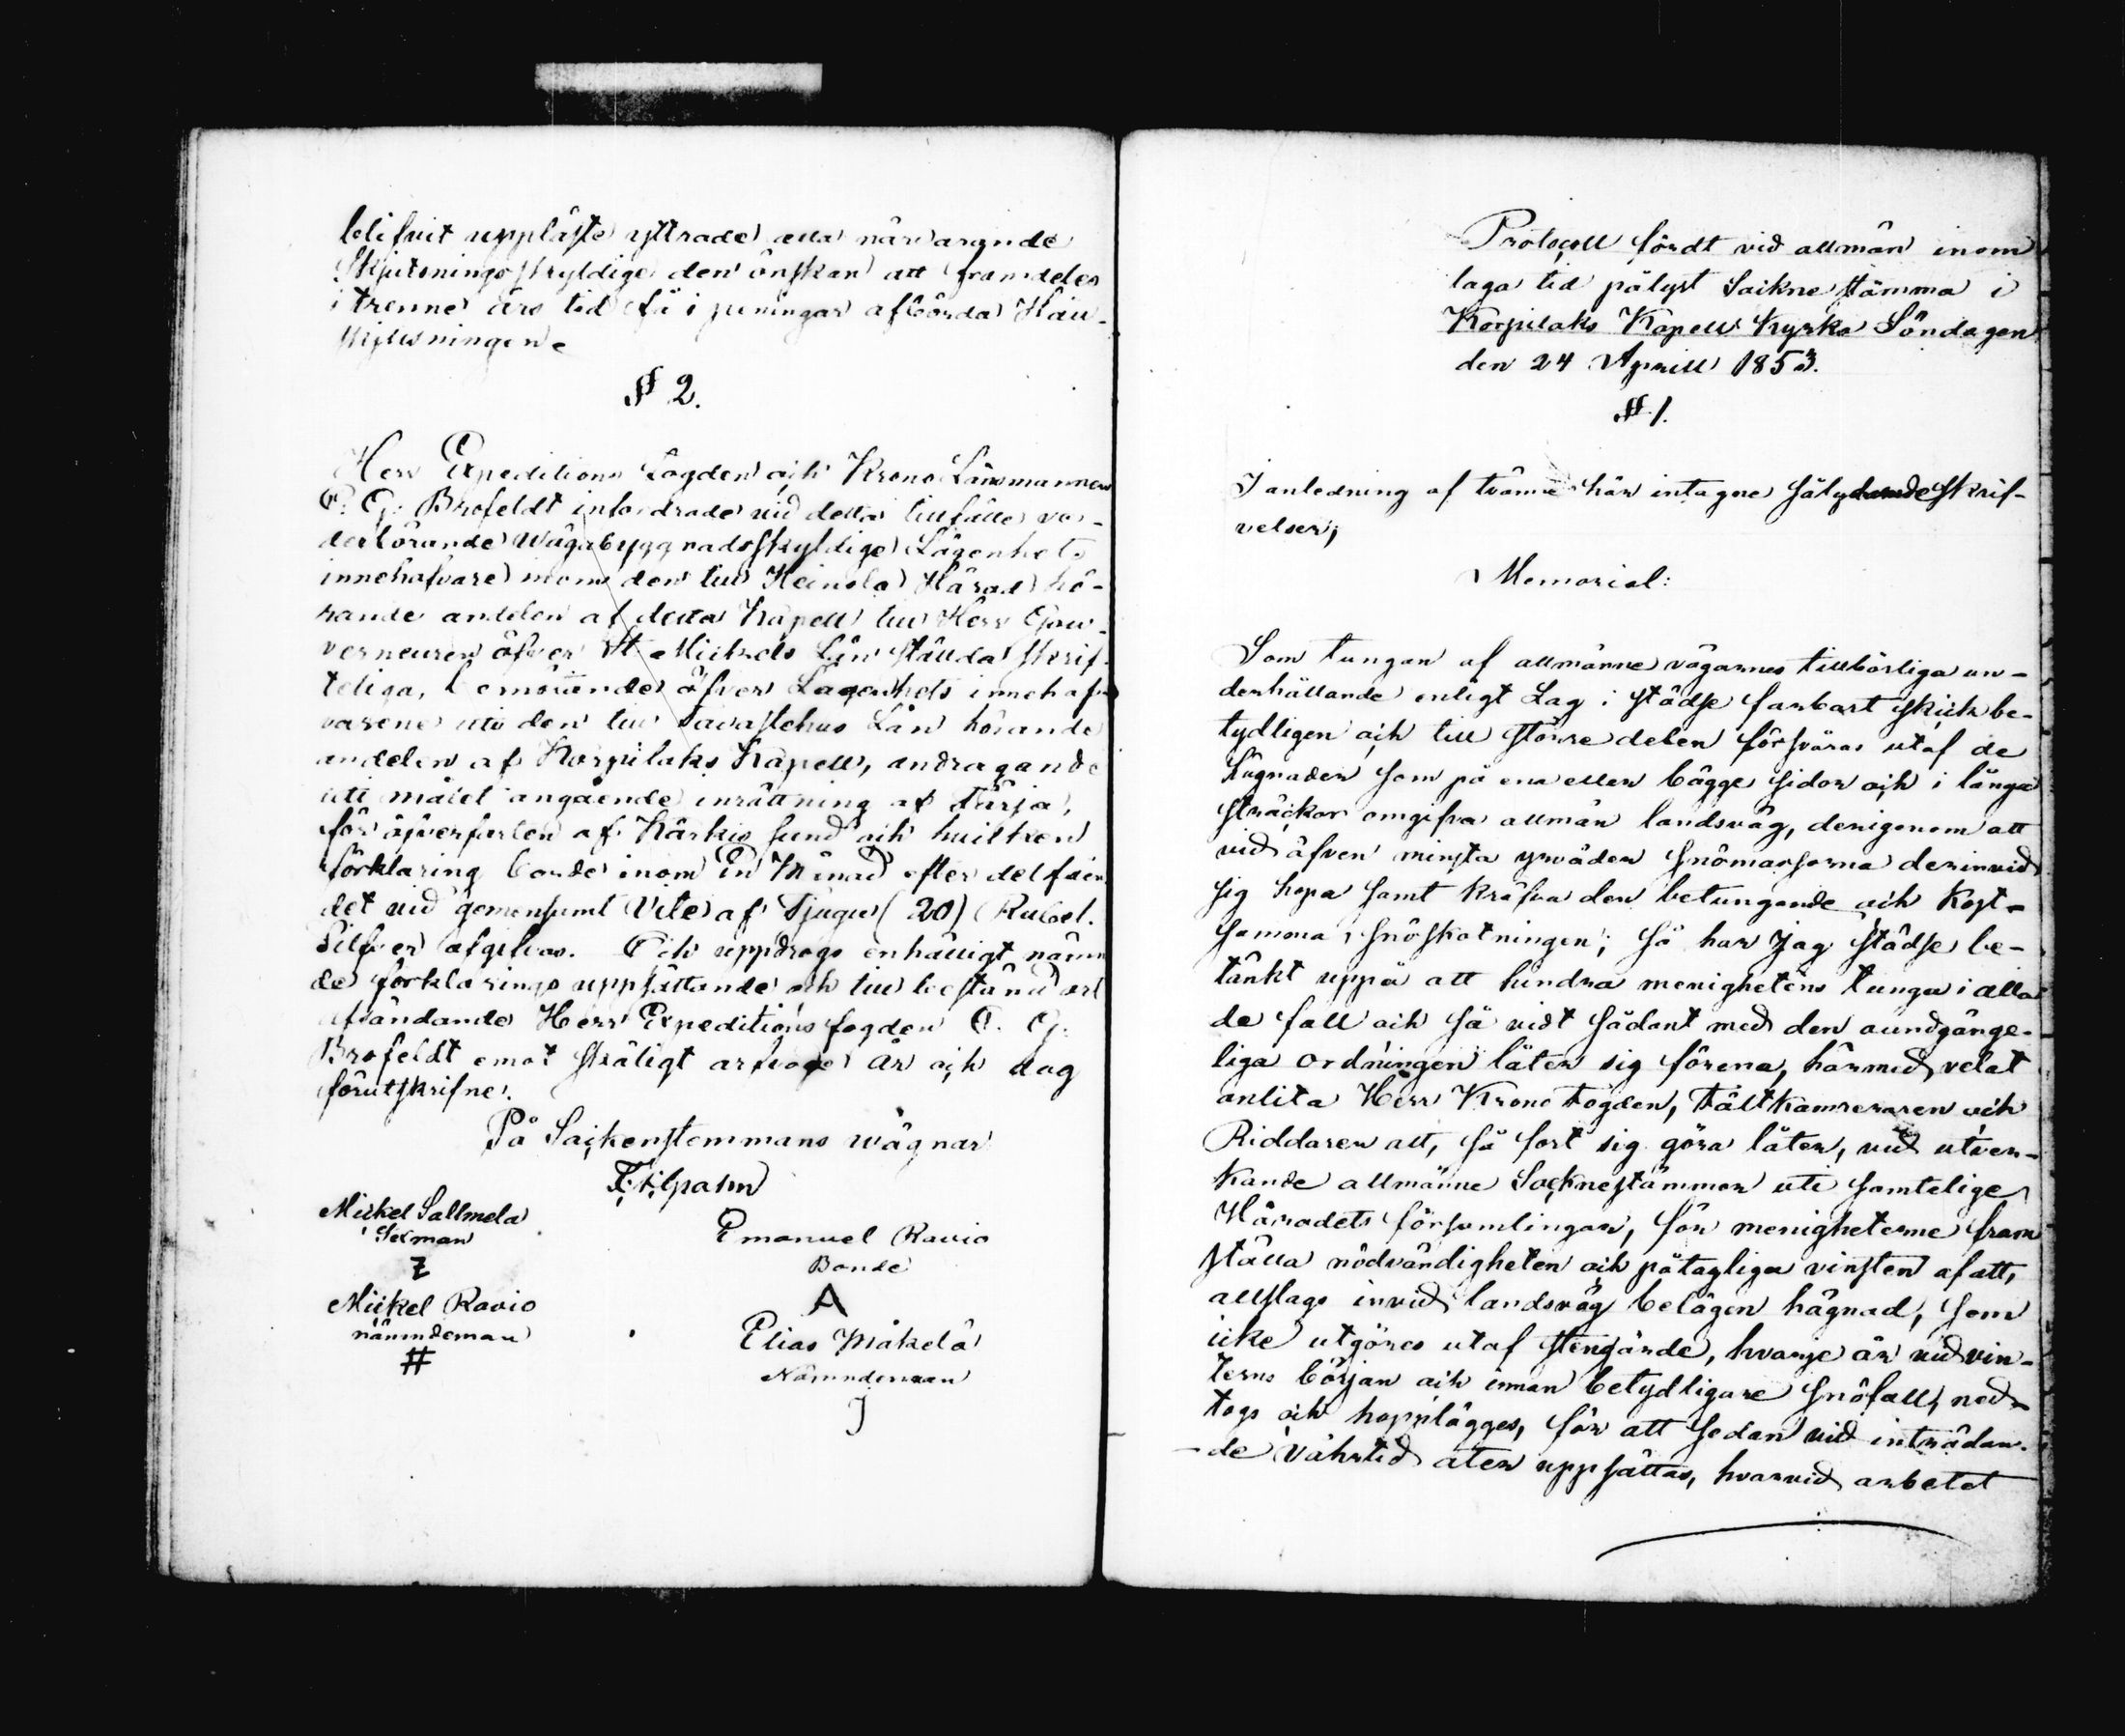 blifvit uppläste yttrade alla närvarande
Skjutsningsskyldige den önskan att framdeles
i trenne års tid få i peningar afbörda Håll-
skjutsningen.
§ 2.
Herr Expeditions Fogden och Krono Länsmannen
C. G. Brofeldt infordrade vid detta tillfälle ve-
derbörande Wägabyggnadsskyldige Lägenhets
innehafvare inom den till Heinola Härad hö-
rande andelen af detta Kapell till Herr Gou-
verneuren öfver St Michels Län ställda skrif-
teliga, bemötande öfver Lägenhets innehaf-
varene uti den till Tavastehus Län hörande
andelen af Korpilaks Kapell, andragande
uti målet angående inrättning af Färja,
för öfverfarten af Kärkis sund och hvilken
förklaring borde inom En Månad efter
det vid gemensamt Vite af Tjugu (20) Rubel.
Silfver afgifvas. Och uppdrogs enhälligt nämn
de förklarings uppsättande och till
afsändande Herr Expeditions fogden C. G.
Brofeldt emot skäligt arfvode År och dag
förutskrifne.
På Sockenstemmans wägnar
Mickel Sallmela
Sexman
Z
Emanuel Ravio
Bonde
A
Mickel Ravio
nämndeman
#
Elias Mäkelä
Nämndeman
J
Protocoll fördt vid allmän inom
laga tid pålyst Sockne stämma i
Korpilaks Kapell Kyrka Söndagen
den 24 Aprill 1853.
§ 1.
I anledning af tvänne här intagne sålydande Skrif-
velser;
Memorial:
Som tungan af allmänne vägarnes tillbörliga un-
derhållande enligt Lag i städse farbart skick be-
tydligen och till större delen försvåras utaf de
hägnader som på ena eller bägge sidor och i långa
sträckor omgifva allmän landsväg, derigenom att
vid äfven minsta yrväder snömassorna derinvid
sig hopa samt kräfva den betungande och kost-
samma snöskotningen; så har Jag städse be-
tänkt uppå att lindra menighetens tunga i alla
de fall och så vidt sådant med den oundgänge-
liga ordningen låter sig förena, härmed velat
anlita Herr Krono Fogden, Fältkamreraren och
Riddaren att, så fort sig göra låter, vid utver-
kande allmänne Socknestämmor uti samtelige
Häradets församlingar, för menigheterne fram
ställa nödvändigheten och påtagliga vinsten af att,
allslags invid landsväg belägen hägnad, som
icke utgöres utaf stengärde, hvarje år vid vin-
terns början och innan betydligare snöfall, ned-
togs och hopplägges, för att sedan vid inträdan-
de Vårtid åter uppsättas, hvarvid arbetet